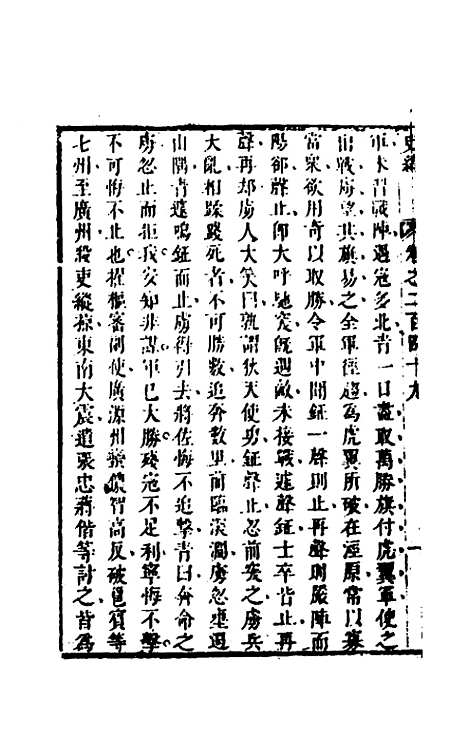 史緯　卷之二百四十九　一
軍未習戰陣遇寇多北青一日盡取萬勝旗付虎翼軍使之
出戰虜望其旗易之全軍徑趨為虎翼所破在涇原常以寡
當眾欲用奇以取勝令軍中聞鉦一聲則止再聲則嚴陣而
陽卻聲止即大呼馳突既遇敵未接戰遽聲鉦士卒皆止再
聲再却虜人大笑曰孰謂狄天使勇鉦聲止忽前突之虜兵
大亂相蹂踐死者不可勝數追奔數里前臨深澗虜忽壅遏
山隅青遽鳴鉦而止虜得引去將佐悔不追擊青曰奔命之
虜忽止而拒我安知非謀軍已大勝殘寇不足利寧悔不擊
不可悔不止也擢樞密副使廣源州蠻儂智高反破邕賓等
七州至廣州殺吏縱掠東南大震遣張忠蔣偕等討之皆為